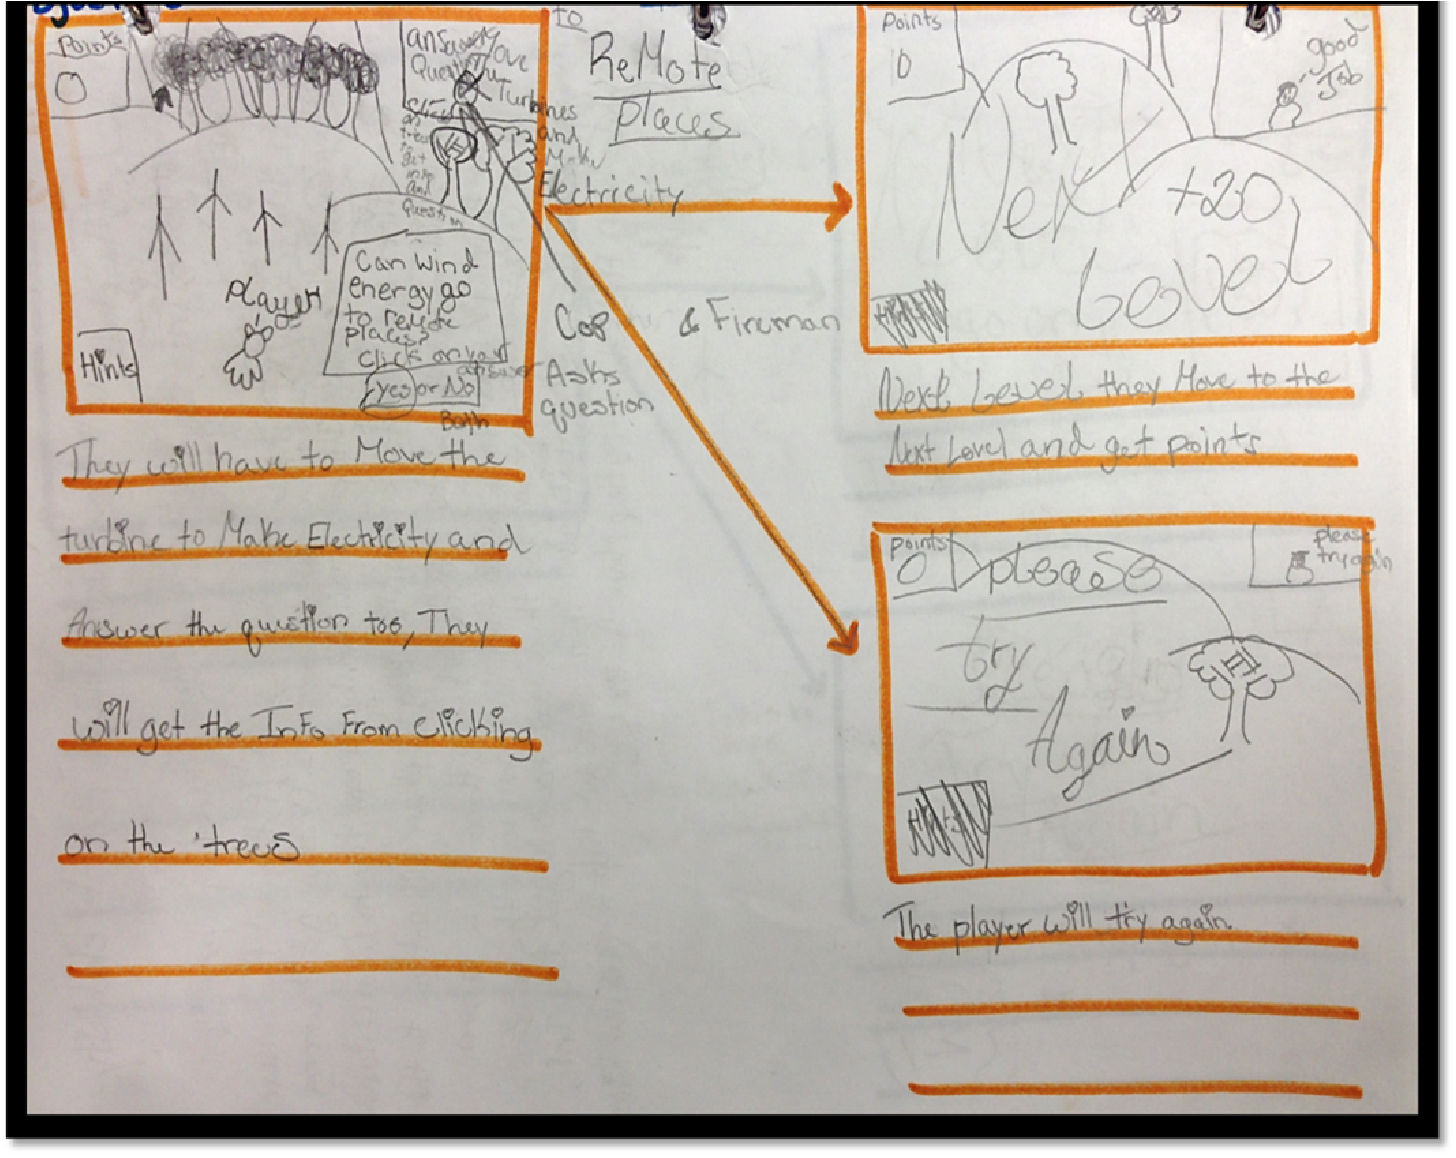 Points
0
answer
Move
Turbines
and
Make
Electricity
click
on
trees
to
get
info
and
Question
player
Can Wind
energy go
to remote
places?
click on your
answer
yes or No
Both
Hints
to
ReMote
places
Cop & Fireman
Asks
question
They will have to Move the
turbine to Make Electricity and
Answer the question too, They
will get the Info From clicking
on the trees
Points
10
good
Job
Next
+20
Level
Next Level they Move to the
Next Level and get points
points
0
please
try again
please
try
Again
The player will try again